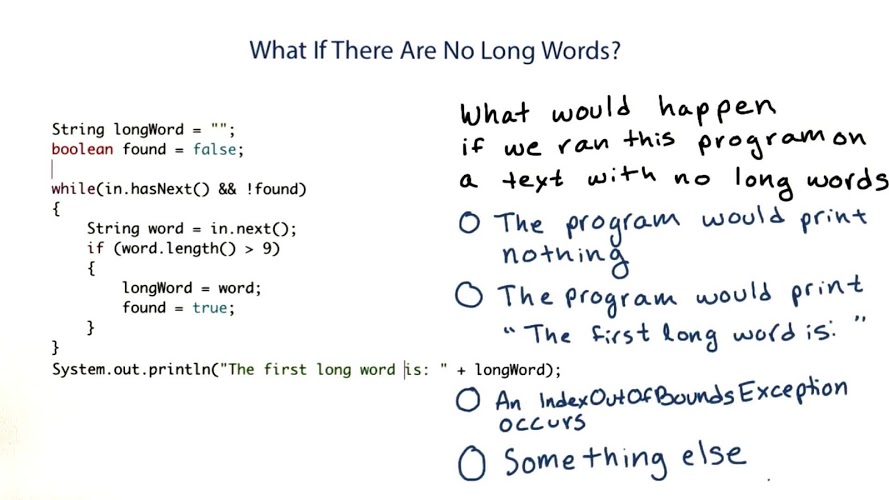 What If There Are No Long Words?
String longWord = "";
boolean found = false;
while(in.hasNext() && !found)
{
String word = in.next();
if (word.length() > 9)
{
longWord = word;
found = true;
}
}
System.out.println("The first long word is: " + longWord);
What would happen
if we ran this program on
a text with no long words
The program would print
nothing
The program would print
"The first long word is: "
An IndexOutOfBoundsException
occurs
Something else